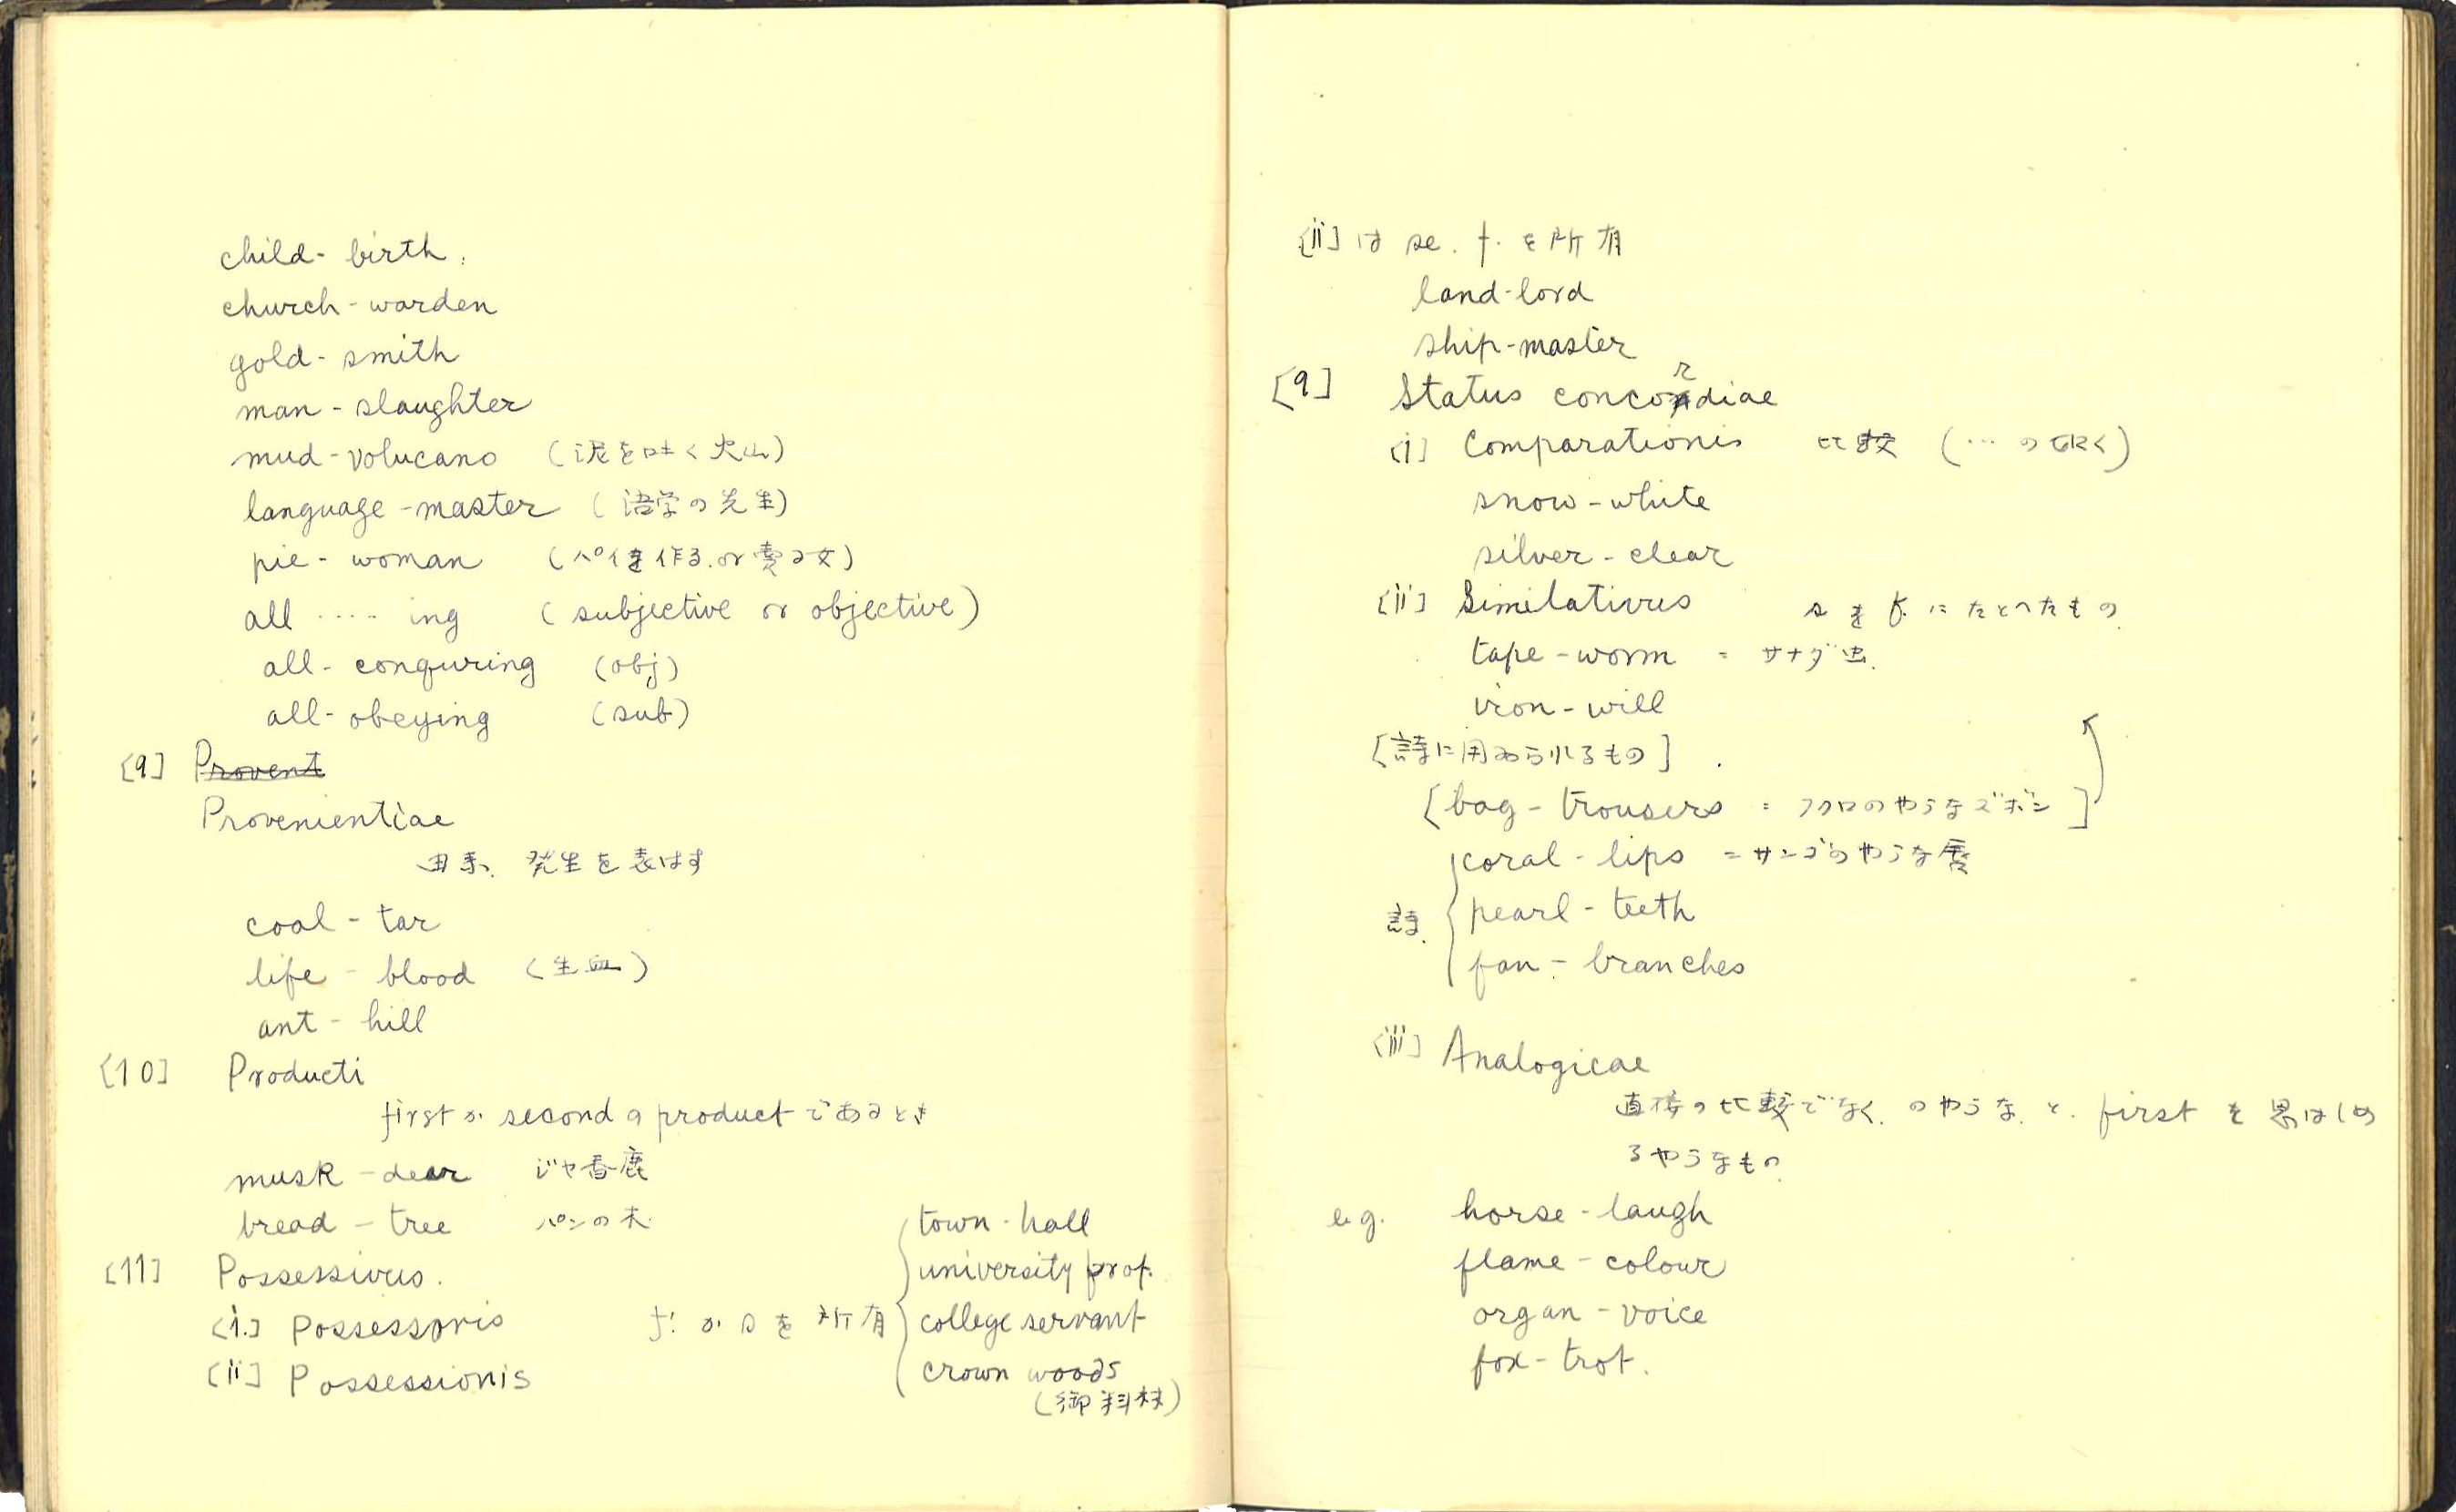 child-birth.
church-warden
gold-smith
man-slaughter
mud-volucano (泥を吐く火山)
language-master (語学の先生)
pie-woman (パイを作る.or 賣る女)
all ..... ing (subjective or objective)
all-conquring (obj)
all-obeying (sub)
[9] Provent
Provenientiae
発生を表はす
coal-tar
life-blood (生血)
ant-hill
[10] Producti
first が second の product であるとき
musk-dear ジャ香鹿
bread-tree パンの木
[11] Possessivus.
[i.] Possessoris f. が s を所有
[ii] Possessionis
town-hall
university prof.
college servant
crown woods
(御料林)
[ii] は se. f. を所有
land-lord
ship-master
[9] Status concordiae
[i] Comparationis 比較 (…の如く)
snow-white
silver-clear
[ii] Similativus s を f. にたとへたもの
tape-worm = サナダ虫.
iron-will
[詩に用ゐられるもの].
[bag-trousers = フクロのやうなズボン]
coral-lips = サンゴのやうな唇
詩. pearl-teeth
fan-branches
[iii] Analogicae
直接の比較でなく.のやうな.と. first を思はしめ
るやうなもの
e.g. horse-laugh
flame-colour
organ-voice
fox-trot.